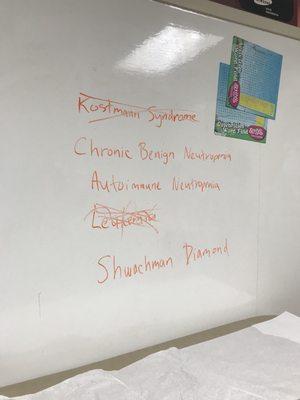 Kostmann Syndrome
Chronic Benign Neutropenia
Autoimmune Neutropenia
Leukemia
Shwachman Diamond